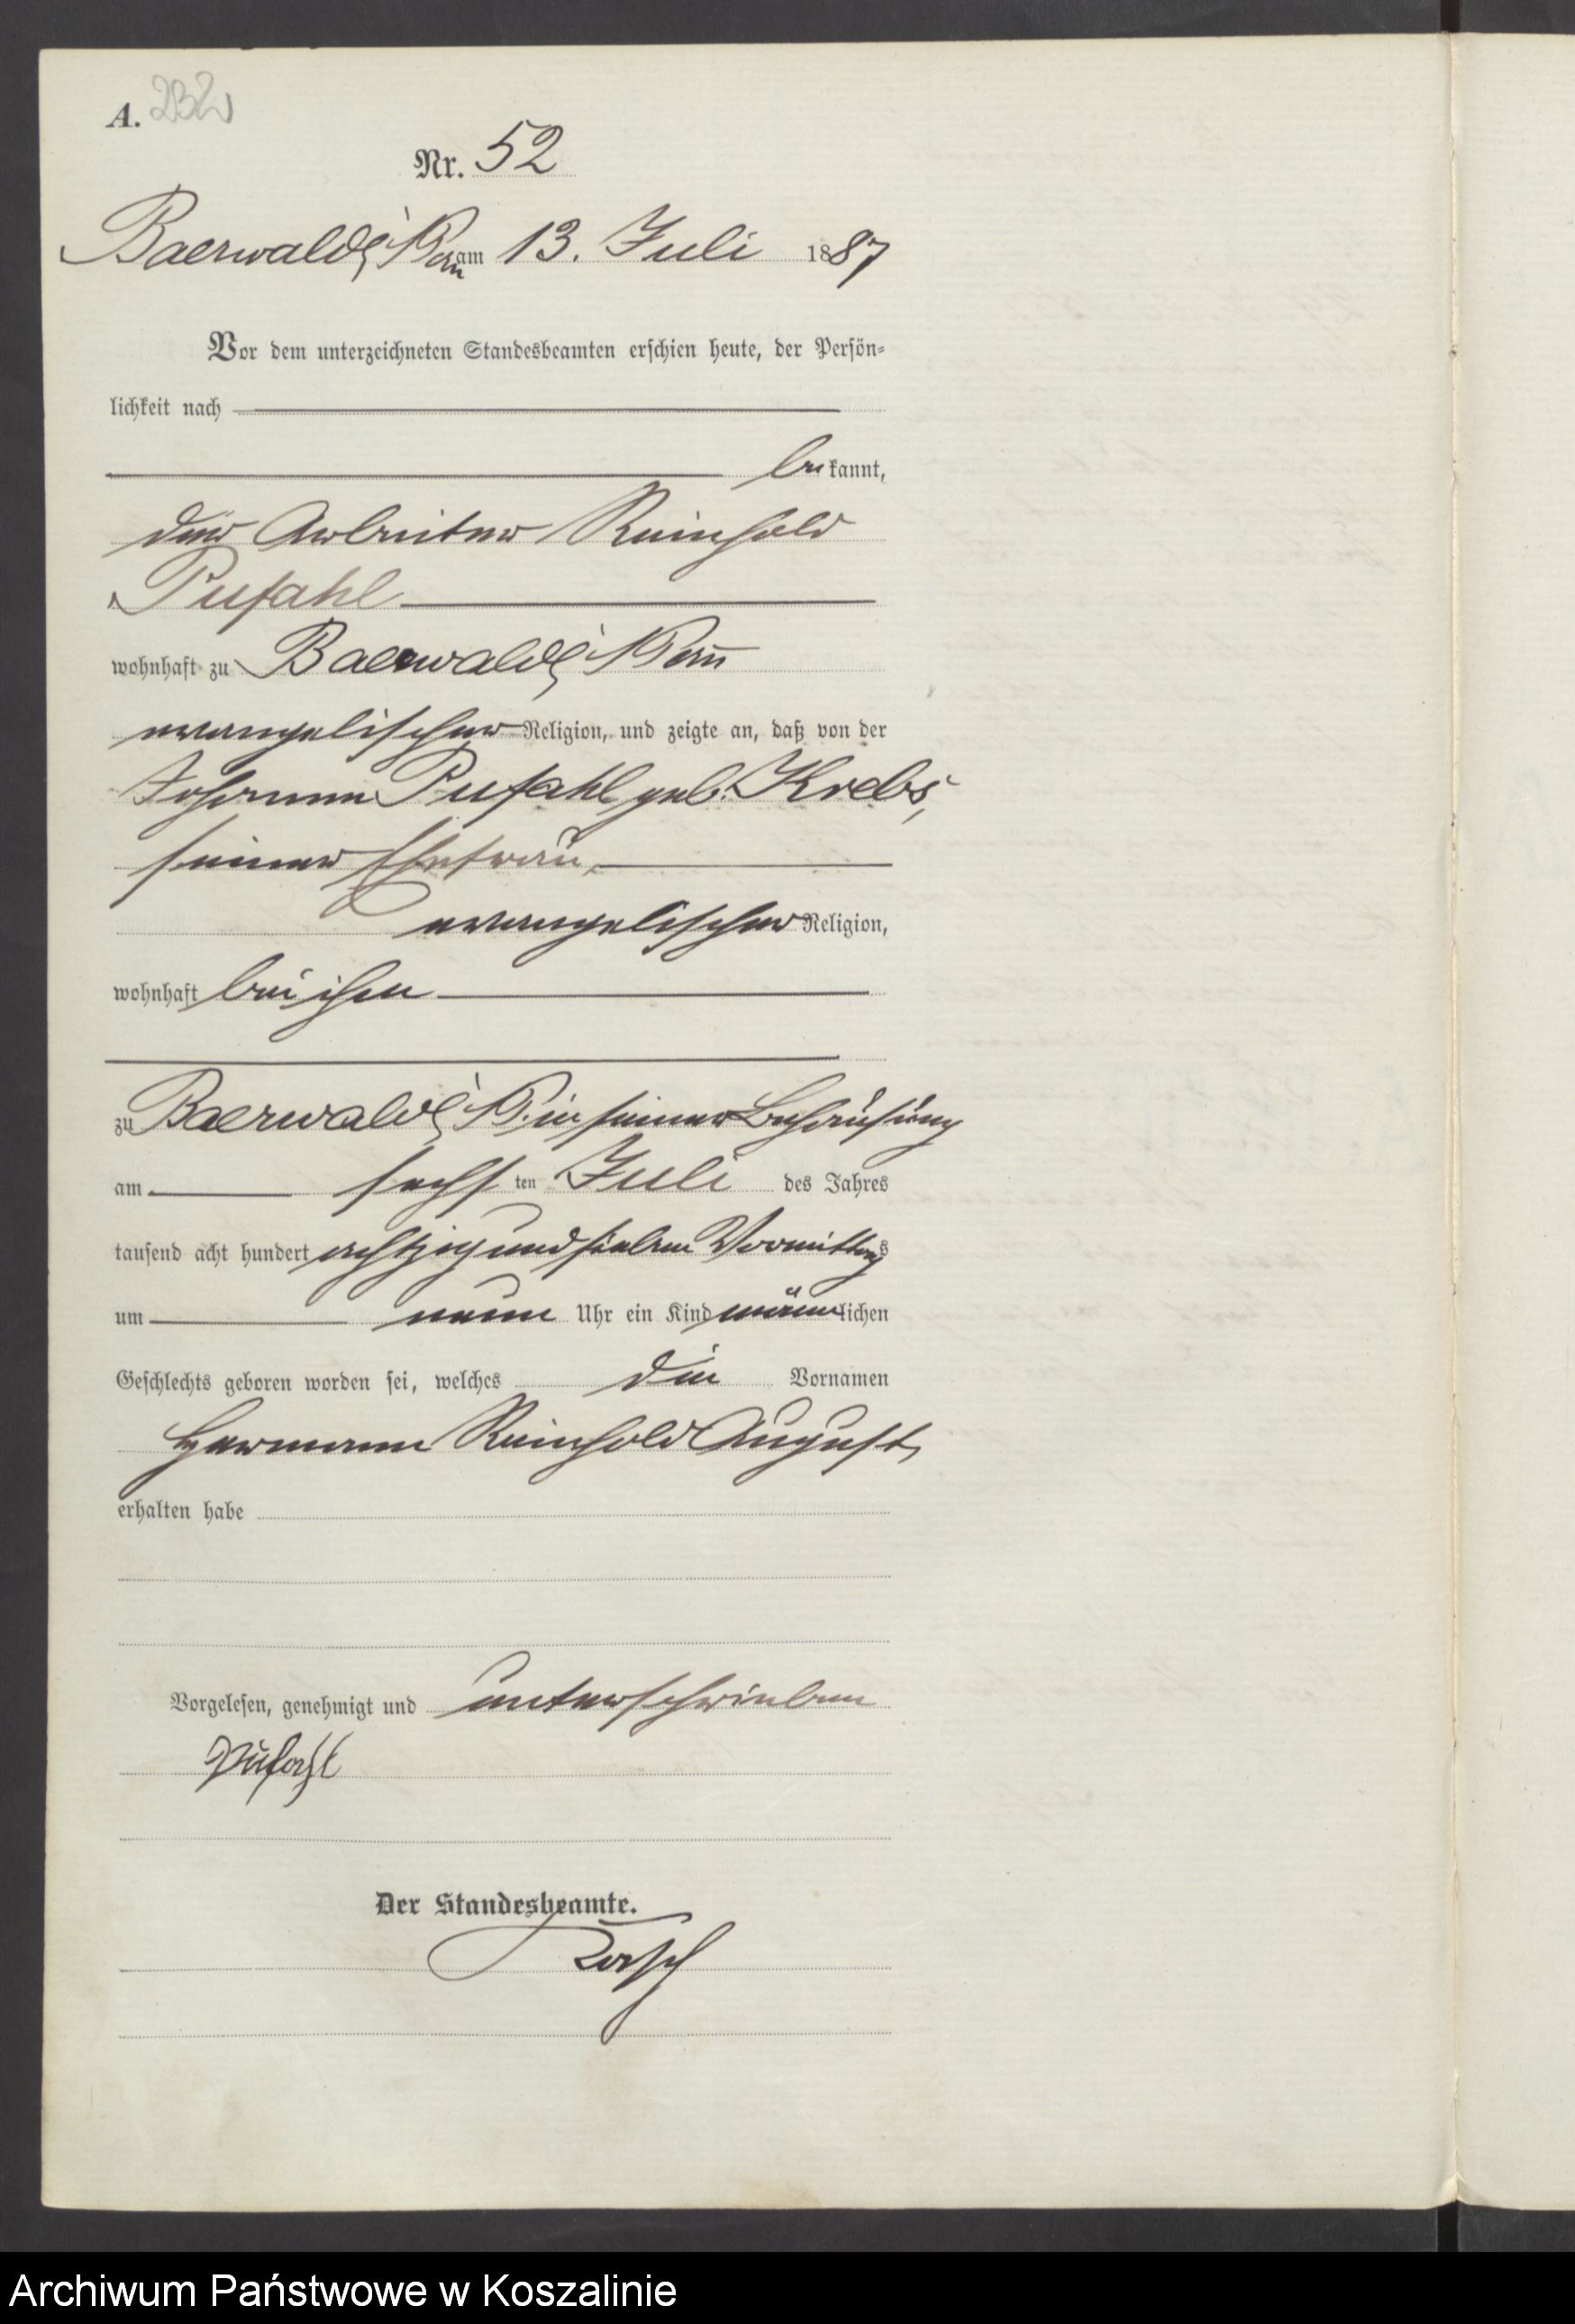 A. 232
Nr. 52
Baerwalde i/Pom am 13. Juli 1887
Vor dem unterzeichneten Standesbeamten erschien heute, der Persön-
lichkeit nach
bekannt,
der Arbeiter Reinhold
Pufahl
wohnhaft zu Baerwalde i/Pom
evangelischer Religion, und zeigte an, daß von der
Johanna Pufahl geb. Krebs,
seiner Ehefrau,
evangelischer Religion,
wohnhaft bei ihm
zu Baerwalde i/P. in seiner Behausung
am sechsten Juli des Jahres
tausend acht hundert achtzig und sieben Vormittags
um neun Uhr ein Kind männlichen
Geschlechts geboren worden sei, welches die Vornamen
Hermann Reinhold August
erhalten habe
Vorgelesen, genehmigt und unterschrieben
Pufahl
Der Standesbeamte.
Archiwum Państwowe w Koszalinie